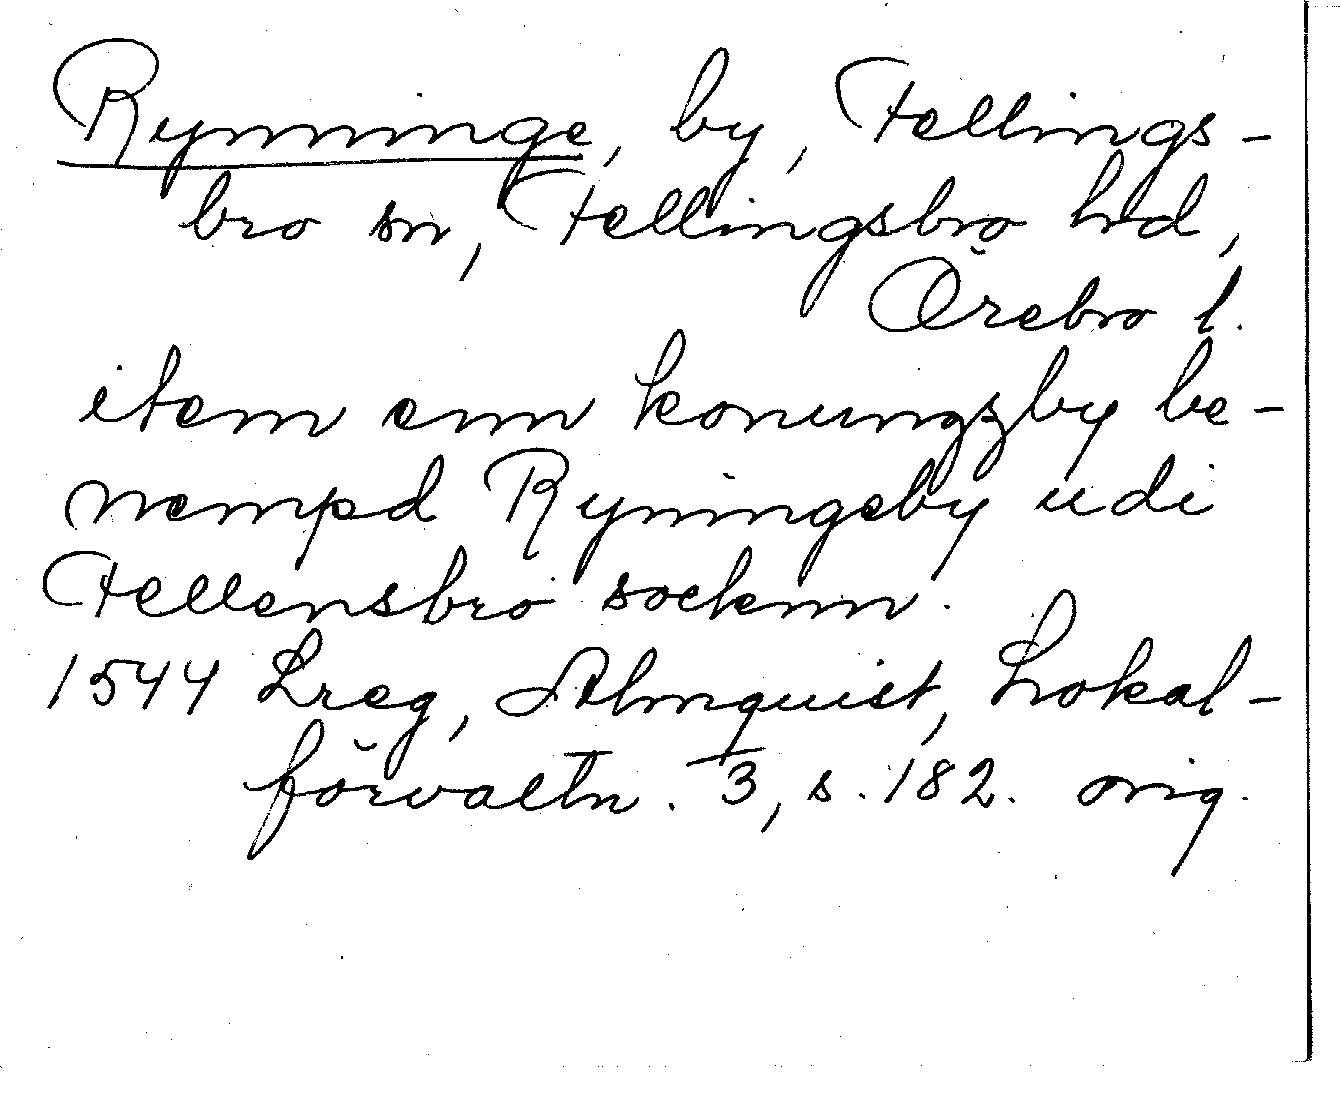 Rynninge, by, Fellings-
bro sn, Fellingsbro hrd,
Örebro l.
item enn konungzby be-
nempd Ryningeby udi
Fellensbro sockenn.
1544 Lreg, Almquist, Lokal-
förvaltn. 3, s. 182. orig.